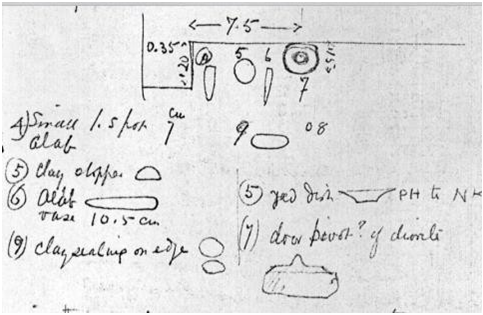 7.5
0.35
5 6
7
4) Small 1.5 pot 7 cm
alab
9 08
(5) clay stopper
(6) Alab
vase 10.5 cm
(9) clay sealing on edge
(5) red dish PH to NK
(7) door pivot? of diorite